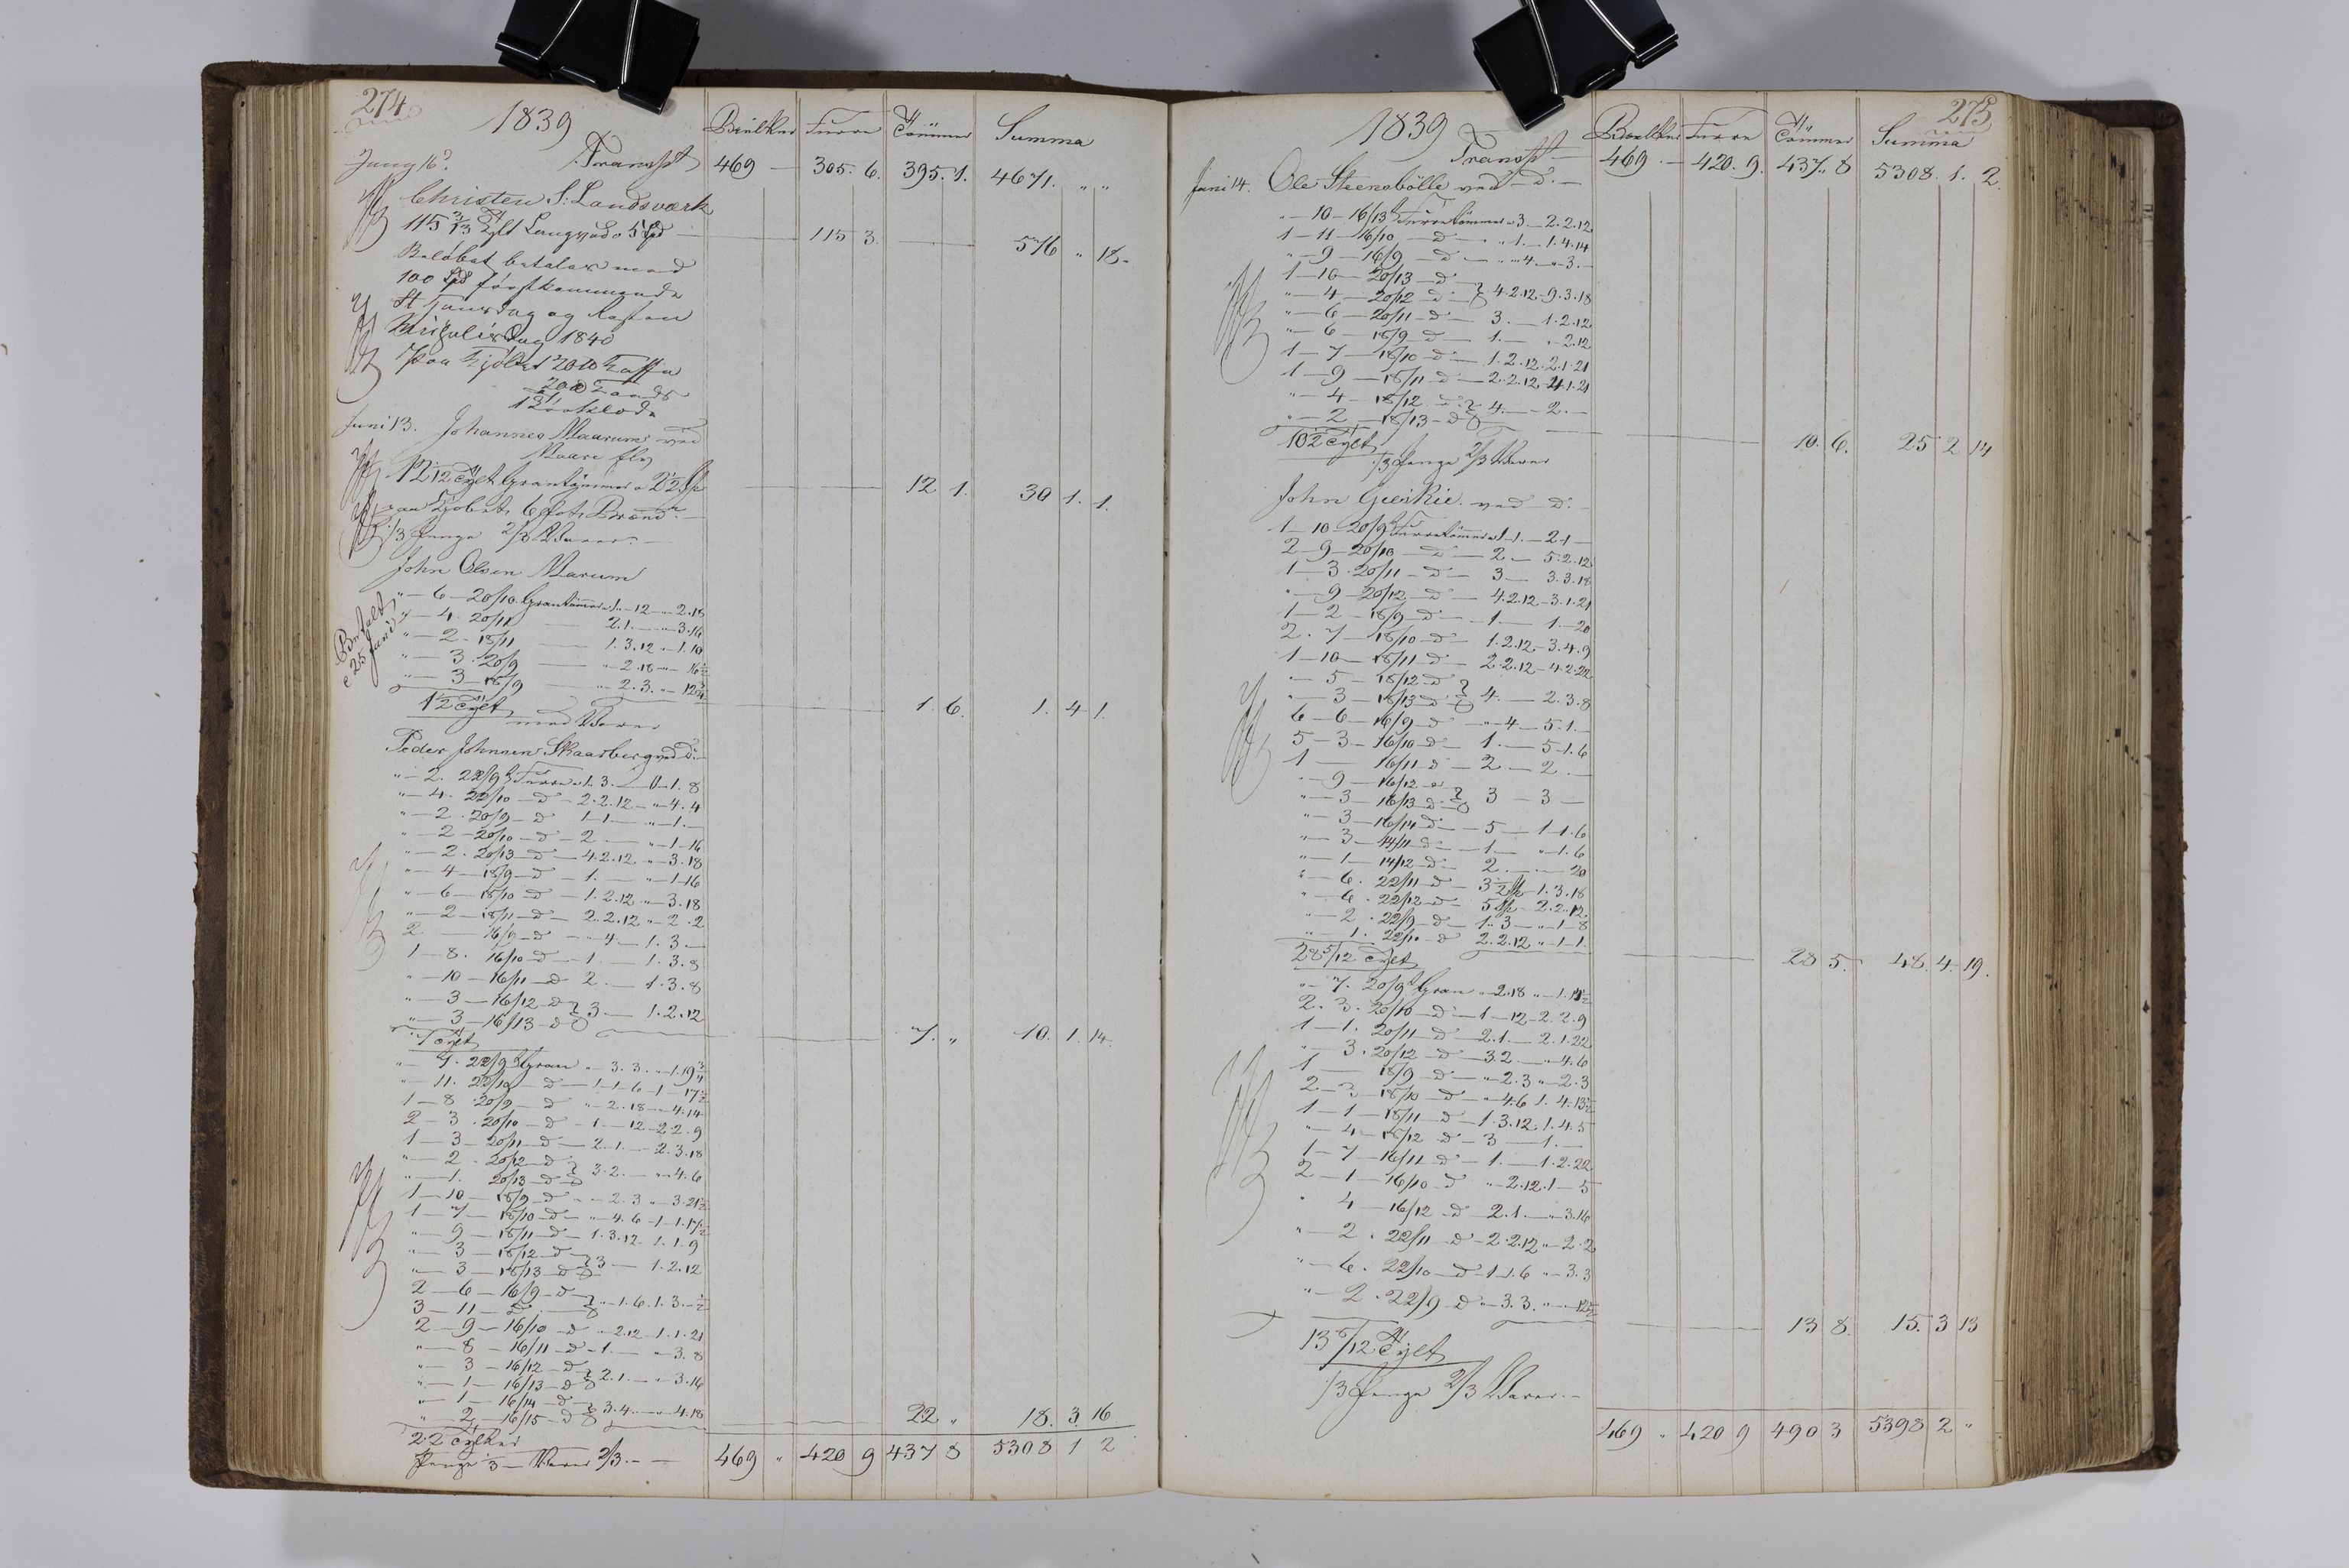 274
1839 Bielker Furre Tömmer Summa
Transpt 469 — 305. 6. 395. 1. 4671. " "
Christen S: Landsværk
115 3/12 Tylt Langved a 5 Spd — 115 3. — 576 " 18 -
Beløbet betales med
100 Spd førstkommende
St Hansdag og Resten
1840
Juni 13. Johannes Maarum ved
12 1/12 Tylt Grantømmer a 2½ Sp — 12 1. 30 1. 1.
1/3 Penge 2/3 Varer. —
John Olsen Marum
Betalt
25 Juni
" — 6 — 20/10 Grantömmer 1 — 12 — " 2. 18
" — 4. 20/11 — 2. 1. — " — 3. 14
" — 2 - 18/11 — 1. 3. 12 " — 1. 10
" — 3. 20/9 — " — 2. 18 — " 16½
" — 3 — 18/9 — " — 2. 3. " — 12¾
1½ Tylt — 1. 6. 1. 4 1.
med Varer
Peder Johnsen Skaarberg ved d:—
" — 2. 22/9 Furre a 1. 3. — " — 1. 8
" — 4 — 22/10 — d — 2. 2. 12 — " — 4. 4
" — 2. 20/9 — d 1. 1. — " — 1. —
" — 2 — 20/10 — d — 2. — " — 1. 16
" — 2. 20/13 — d — 4. 2. 12 " — 3. 18
" — 4 — 18/9 — d — 1. — " — 1. 16
" — 6 — 18/10 — d — 1. 2. 12 " — 3. 18
" — 2 — 18/11 — d — 2. 2. 12 " — 2. 2
2 — 16/9 — d — " 4 — 1. 3 —
1 — 8. 16/10 — d — 1. — 1. 3. 8
" — 10 — 16/11 — d 2. — 1. 3. 8
" — 3 — 16/12 — d } 3 — 1. 2. 12
" — 3 — 16/13 — d
7 Tylt — 7. " 10. 1 14.
" — 7. 22/9 Gran " 3. 3. " — 1. 19¾
" — 11. 22/10 — d — 1. 1. 6 — 1 — 17½
1 — 8. 20/9 — d " — 2. 18 — " 4. 14
2 — 3. 20/10 — d — 1 — 12 — 2. 2. 9
1 — 3 — 20/11 — d — 2. 1. — 2. 3. 18
" — 2 — 20/12 — d } 3. 2. — " 4. 6
" — 1. 20/13 — d
1 — 10 — 18/9 — d — " 2. 3 " — 3. 21½
1 — 7 — 18/10 — d — " 4. 6 — 1. 1. 17½
" — 9 — 18/11 — d — 1. 3. 12. 1. 1. 9
" — 3 — 18/12 — d } 3 — 1. 2. 12
" — 3 — 18/13 — d
2 — 6 — 16/9 — d } " 1. 6. 1. 3. — ½
3 — 11 — d
2 — 9 — 16/10 — d " 2. 12 — 1. 1. 21
" — 8 — 16/11 — d — 1. — " 3. 8
" — 3 — 16/12 — d } 2. 1. — " 3. 16
" — 1 — 16/13 — d
" — 1 — 16/14 — d } 3. 4. — " 4. 18
" — 2 — 16/15 — d — 22 " 18. 3 16
22 Tylter
Penge 1/3 — Varer 2/3. — 469 " 420 9 437 8 5308 1 2
275
1839 Bielker Furre Tömmer Summa
Transpt — 469 — 420. 9. 437. 8 5308. 1. 2.
Juni 14. Ole Steensbölle ved d. —
" — 10 — 16/13 Furretömmer a 3 — 2. 2. 12
1 — 11 — 16/10 — d — " 1. — 1. 4. 14
" — 9 — 16/9 — d — " 4 — " 3. —
1 — 10 — 20/13 — d } 4. 2. 12 — 9. 3. 18
" — 4 — 20/12 — d
" — 6 — 20/11 — d — 3. — 1. 2. 12
" — 6 — 18/9 — d — 1. — " 2. 12
1 — 7 — 18/10 — d — 1. 2. 12. 2. 1. 21
1 — 9 — 18/11 — d — 2. 2. 12 4. 1. 21
" — 4 — 18/12. d } 4. — 2. —
" — 2 — 18/13 — d
10½ Tylt — 10. 6. 25 2 14
1/3 Penge 2/3 Varer
John Geerkie ved d: —
1 — 10 — 20/9 Furretömmer 1. 1. — 2. 1 —
2 — 9 — 20/10 — d — 2. — 5. 2. 12
1 — 3. 20/11 — d — 3 — 3. 3. 18
" — 9 — 20/12 — d — 4. 2. 12 — 3. 1. 21
1 — 2 — 18/9 — d — 1 — 1. — 20
2. 7 — 18/10 — d — 1. 2. 12 — 3. 4. 9
1 — 10 — 18/11 — d — 2. 2. 12 — 4. 2. 22
" — 5 — 18/12 d } 4. — 2. 3. 8
" — 3 — 18/13 d
6 — 6 — 16/9 — d — " 4 — 5. 1. —
5 — 3 — 16/10 — d — 1. — 5. 1. 6
1 — 16/11 — d — 2 — 2. —
" — 9 — 16/12 — d } 3 — 3 —
" — 3 — 16/13 — d
" — 3 — 16/14 d — 5 — 1. 1. 6
" — 3 — 14/11 — d — 1 — " 1. 6
" — 1 — 14/12 — d — 2 — " — 20
" — 6. 22/11 — d — 3½ Sp — 1. 3. 18
" — 6. 22/12 — d — 5 Sp — 2. 2. 12
" — 2. 22/9 — d — 1. 3 — " — 1 — 8
" — 1. 22/10 — d 2. 2. 12 " 1. 1.
28 5/12 Tylt — 28 5. 48. 4. 19.
" — 7. 20/9 Gran " 2. 18 " — 1. 14½
2. 3. 20/10 — d — 1 — 12 — 2. 2. 9
1 — 1. 20/11 — d — 2. 1. — 2. 1. 22
" — 3. 20/12 — d — 3. 2 — " 4. 6
1 — 18/9 — d — " 2. 3 " — 2. 3
2 — 3 — 18/10 — d — " 4. 6 1. 4. 13½
1 — 1 — 18/11 — d — 1. 3. 12. 1. 4. 5
" — 4 — 18/12 — d — 3 — 1. —
1 — 7 — 16/11 — d — 1. — 1. 2. 22
2 — 1 — 16/10 — d " — 2. 12. 1 — 5
" 4 — 16/12 — d — 2. 1. — " 3. 16
" — 2. 22/11 — d — 2. 2. 12 " — 2. 2
" — 6. 22/10 — d — 1. 1. 6 " — 3. 3
" — 2. 22/9 — d — " 3. 3. " — 12½
— 13 8. 15. 3 13
13 8/12 Tylt
1/3 Penge 2/3 Varer. —
469 " 420 9 490 3 5398 2 "